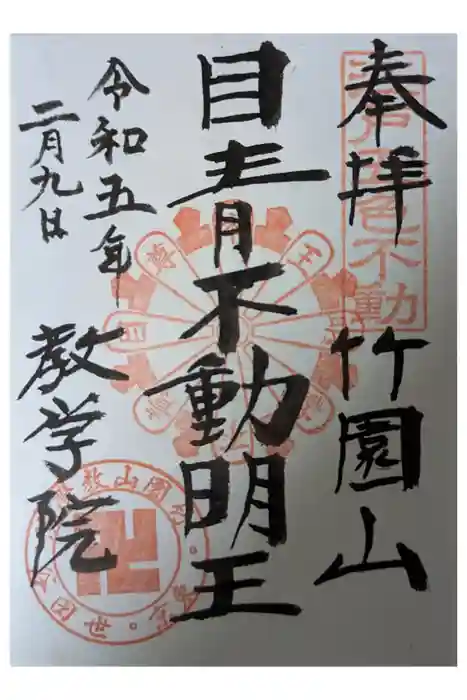 奉拝
竹園山
目青不動明王
教学院
令和五年
二月九日
江戸五色不動